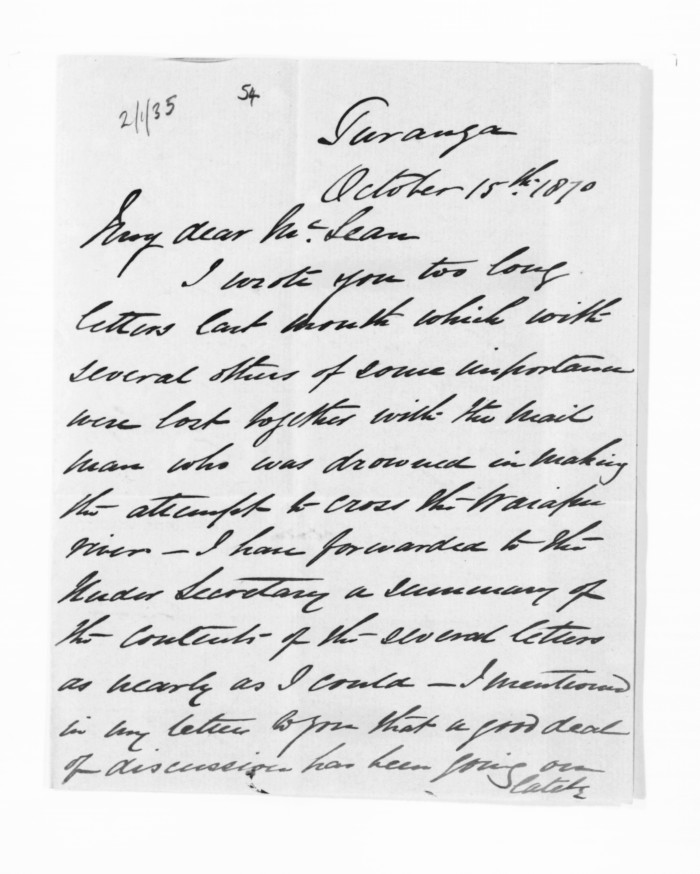 2/1/35
54
Turanga
October 15th. 1870
My dear Mc. Lean
I wrote you two long
letters last month which with
several others of some importance
were lost together with the mail
man who was drowned in making
the attempt to cross the Waiapu
river – I have forwarded to the
Under Secretary a summary of
the contents of the several letters
as nearly as I could – I mentioned
in my letter to you that a good deal
of discussion has been going on
lately